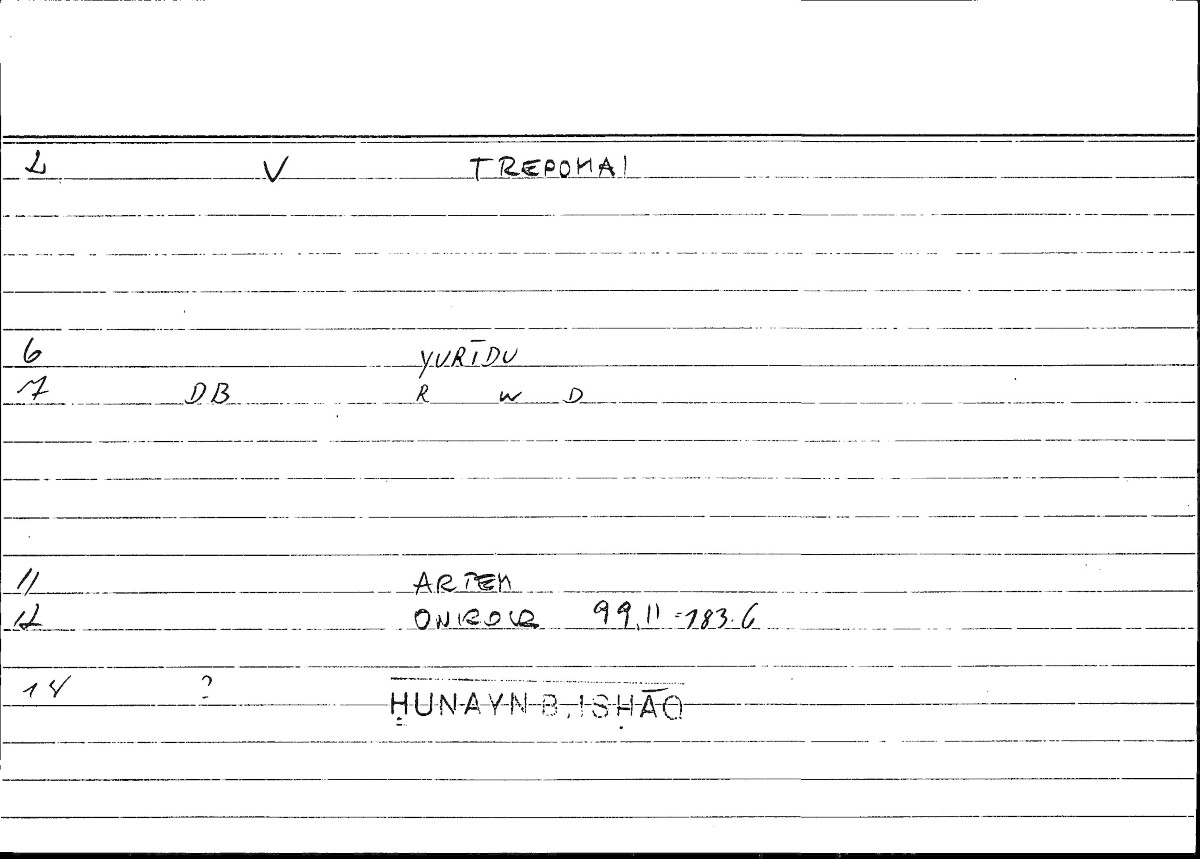 2 V TREPOMAI
6 YURĪDU
7 DB R W D
11 ARTEM
12 ONIROCR 99,11-183.6
14 ? ḤUNAYN B. ISḤĀQ